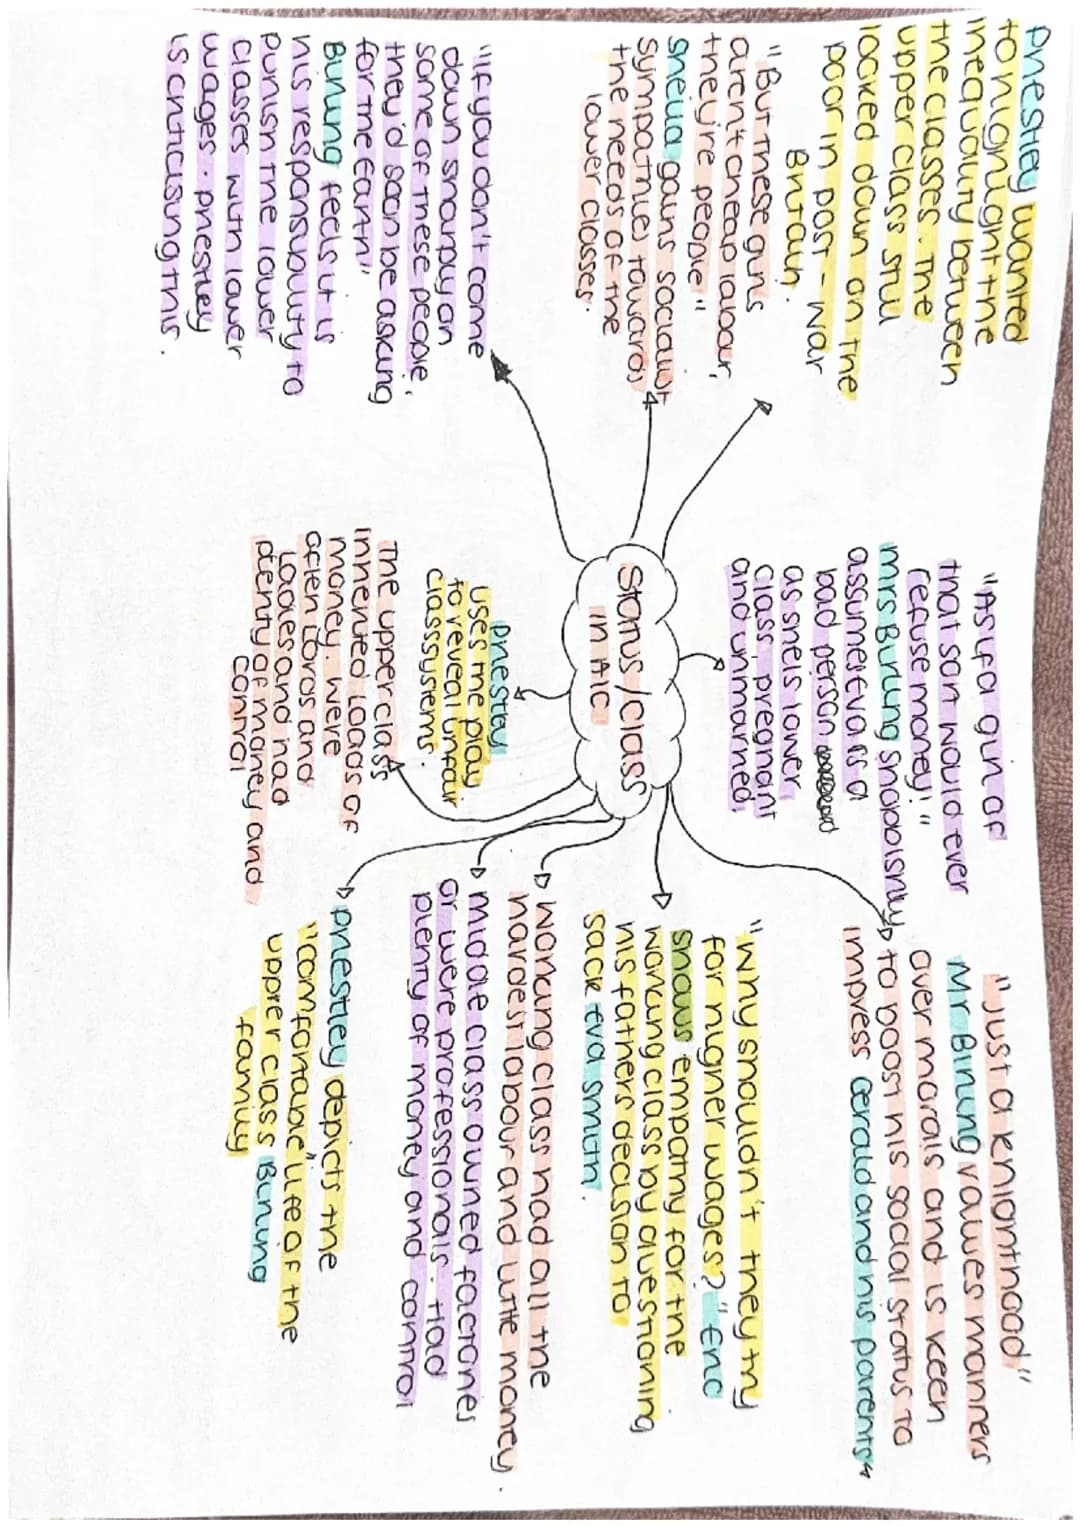 Status/class
in AIC
Priestley wanted
to highlight the
inequality between
the classes. The
upper class still
looked down on the
poor in post-war
Britain.
"But these girls
aren't cheap labour,
they're people"
Sheila gains socialist
sympathies towards
the needs of the
lower classes.
"If you don't come
down sharply on
some of these people,
they'd soon be asking
for the earth"
Birling feels it is
his responsibility to
punish the lower
classes with lower
wages. priestley
is criticising this.
"As if a girl of
that sort would ever
refuse money!"
mrs Birling snobbishly
assumes Eva is a
bad person
as she is lower
class, pregnant
and unmarried
priestley
uses the play
to reveal unfair
class systems.
The upper class
inherited loads of
money. were
often Lords and
Ladies and had
plenty of money and
control
"Just a knighthood"
Mr Birling values manners
over morals and is keen
to boost his social status to
impress Gerald and his parents
"Why shouldn't they try
for higher wages?" Eric
shows empathy for the
working class by questioning
his fathers decision to
sack Eva Smith.
Working class had all the
hardest labour and little money.
Middle class owned factories
or were professionals. Had
plenty of money and control
priestley depicts the
"comfortable" life of the
upper class Birling
family